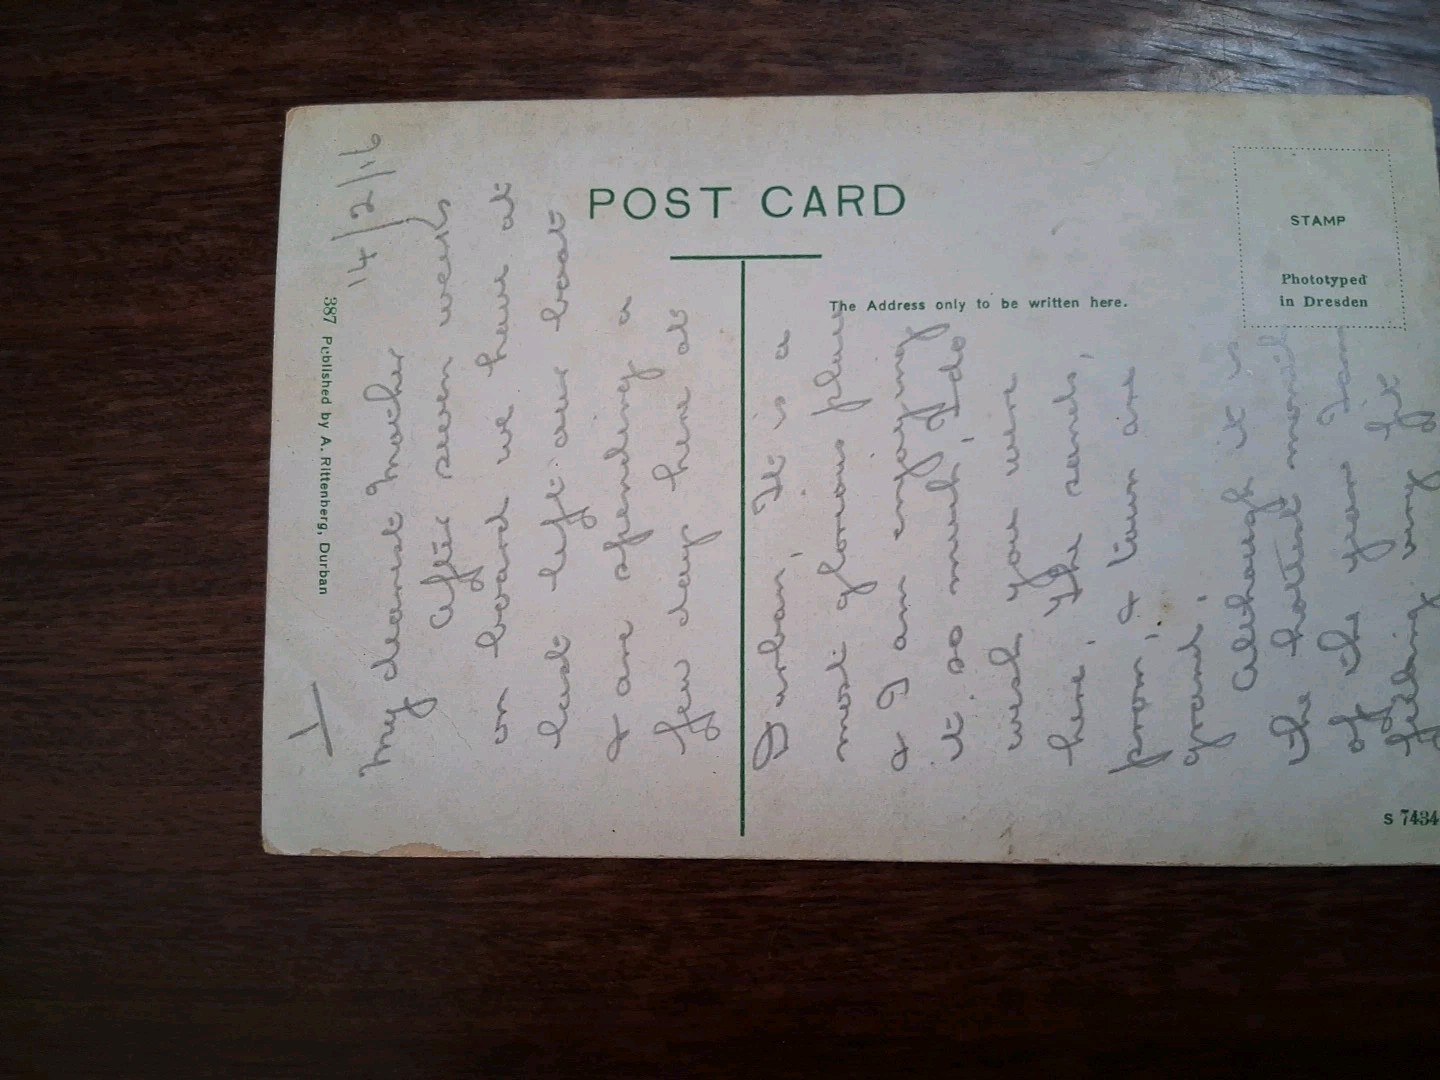 POST CARD
The Address only to be written here.
STAMP
Phototyped
in Dresden
387 Published by A. Rittenberg, Durban
S 7434
I
14/2/16
My dearest Mother
After seven weeks
on board we have at
last left our boat
& are spending a
few days here at
Durban. It is a
most glorious place
& I am enjoying
it so much, I do
wish you were
here. The sands,
prom, & town are
grand.
Although it is
the hottest month
of the year I am
feeling very fit